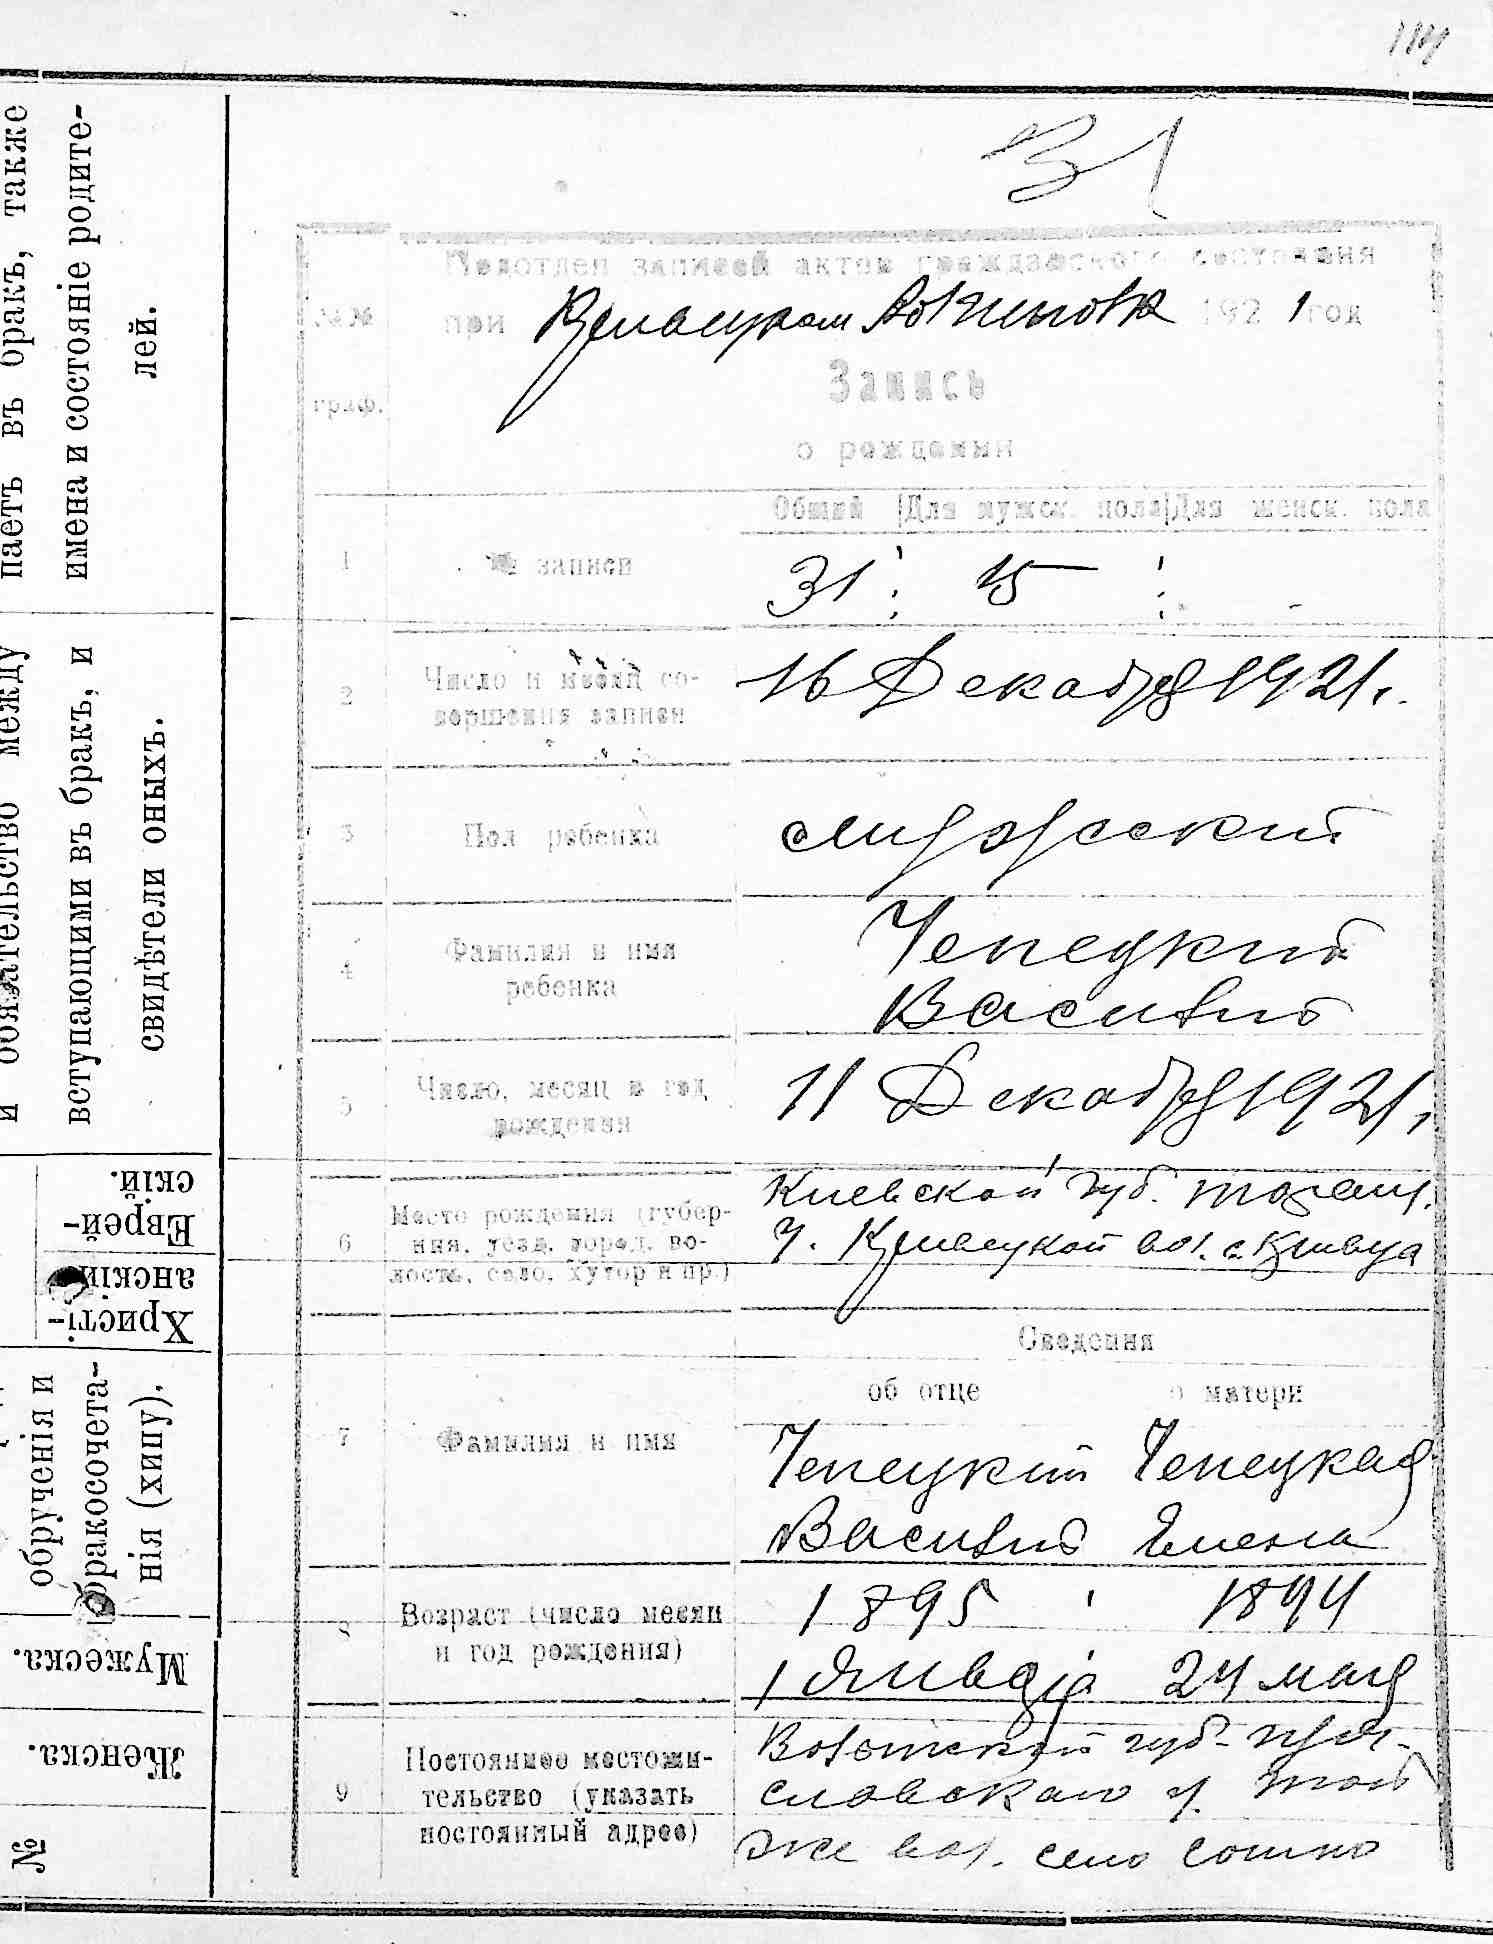 31
Подотдел записей актов гражданского состояния
№№ при 1921 год
граф.
Запись
о рождении
Общий Для мужск. пола Для женск. пола
1 № записи 31 15
2 Число и месяц со-
вершения записи
16 Декабря 1921 г.
3 Пол ребенка мужеский
4 Фамилия и имя
ребенка
Чепецкий
Василий
5 Число, месяц и год
рождения
11 Декабря 1921 г.
6 Место рождения (губер-
ния, уезд, город, во-
лость, село, хутор и пр.)
Киевской губ.
у. вол. с.
Сведения
об отце о матери
7 Фамилия и имя
Чепецкий Чепецкая
Василий Елена
8 Возраст (число месяц
и год рождения)
1895 1894
1 Января 24 мая
9 Постоянное местожи-
тельство (указать
постоянный адрес)
губ.
у. той
же вол. село
паетъ въ бракъ, также
имена и состояніе родите-
лей.
и обязательство между
вступающими въ бракъ, и
свидѣтели оныхъ.
Еврей-
скій.
Христі-
анскій.
обрученія и
бракосочета-
нія (хипу).
Мужеска.
Женска.
№